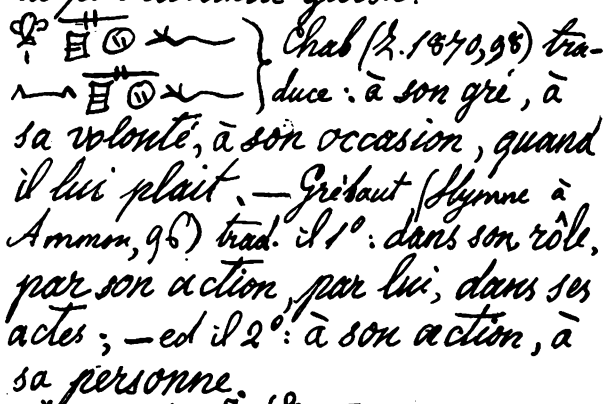 Chab (Z. 1870, 98) tra-
duce : à son gré, à
sa volonté, à son occasion, quand
il lui plait. — Grébaut (Hymne à
Ammon, 96) trad. il 1° : dans son rôle,
par son action, par lui, dans ses
actes ; — ed il 2° : à son action, à
sa personne.